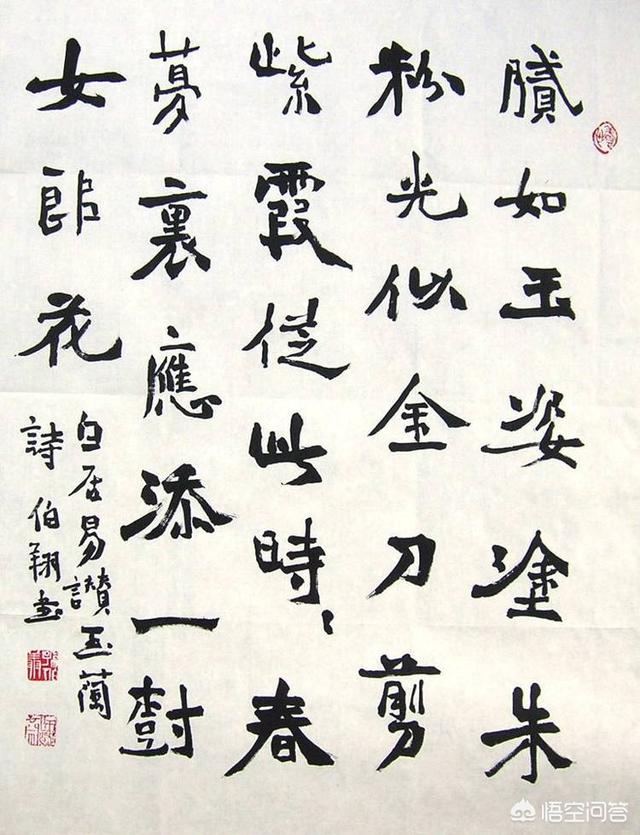 膩如玉姿塗朱
粉光似金刀剪
紫霞從此時〻春
夢裏應添一樹
女郎花
白居易讚玉蘭
詩伯翔書
悟空问答